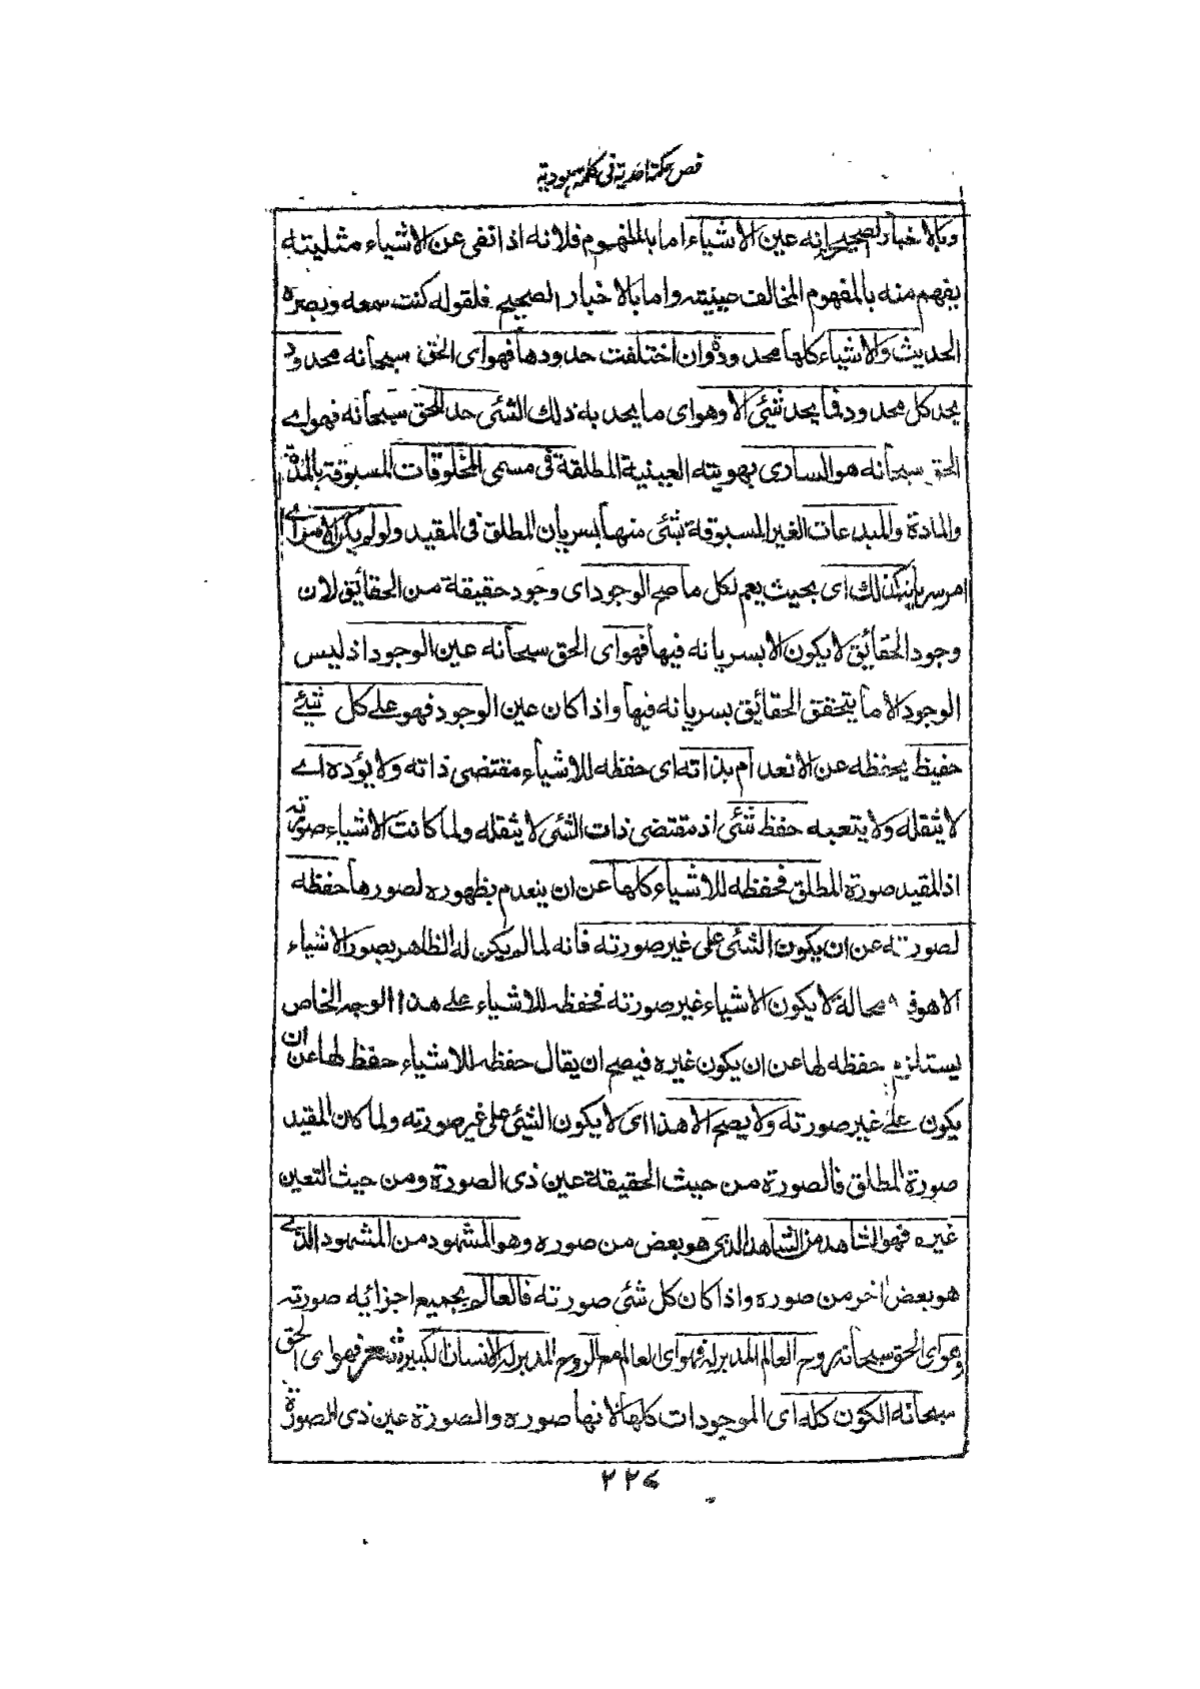 فص حكمة احدية فى كلمة هودية
وبالاخبار الصحيح انه عين الاشياء اما بالمفهوم فلانه اذا نفى عن الاشياء مثليته
يفهم منه بالمفهوم المخالف عينيته واما بالاخبار الصحيح فلقوله كنت سمعه وبصره
الحديث والاشياء كلها محدودة وان اختلفت حدودها فهو اى الحق سبحانه محدود
بحد كل محدود فما يحد شئى الا وهو اى ما يحد به ذلك الشئى حد للحق سبحانه فهو اے
الحق سبحانه هو السارى بهويته العينية المطلقة فى مسمى المخلوقات المسبوقة بالمدة
والمادة والمبدعات الغير المسبوقة بشئى منها بسريان المطلق فى المقيد ولو لم يكن الامر اے
امر سريانه كذلك اى بحيث يعم لكل ما صح الوجود اى وجود حقيقة من الحقائق لان
وجود الحقائق لا يكون الا بسريانه فيها فهو اى الحق سبحانه عين الوجود اذ ليس
الوجود الا ما يتحقق الحقائق بسريانه فيها واذا كان عين الوجود فهو على كل شئے
حفيظ يحفظه عن الانعدام بذاته اى حفظه للاشياء مقتضى ذاته ولا يؤده اے
لا يثقله ولا يتعبه حفظ شئى اذ مقتضى ذات الشئى لا يثقله ولما كانت الاشياء صورته
اذ المقيد صورة المطلق فحفظه للاشياء كلها عن ان ينعدم بظهوره لصورها حفظه
لصورته عن ان يكون الشئى على غير صورته فانه لما لم يكن له الظاهر بصور الاشياء
الا هو فـ محالة لا يكون الاشياء غير صورته فحفظه للاشياء على هذا الوجه الخاص
يستلزم حفظه لها عن ان يكون غيره فيصح ان يقال حفظه للاشياء حفظ لها عن ان
يكون على غير صورته ولا يصح الا هذا اى لا يكون الشئى على غير صورته ولما كان المقيد
صورة المطلق فالصورة من حيث الحقيقة عين ذى الصورة ومن حيث التعين
غيره فهو الشاهد من الشاهد الذى هو بعض من صوره وهو المشهود من المشهود الذے
هو بعض اخر من صوره واذا كان كل شئى صورته فالعالم بجميع اجزائه صورته
وهو اى الحق سبحانه روح العالم المدبر له فهو اى العالم مع الروح المدبر له الانسان الكبير شعر فهو اى الحق
سبحانه الكون كله اى الموجودات كلها لانها صوره والصورة عين ذى الصورة
٢٢٤